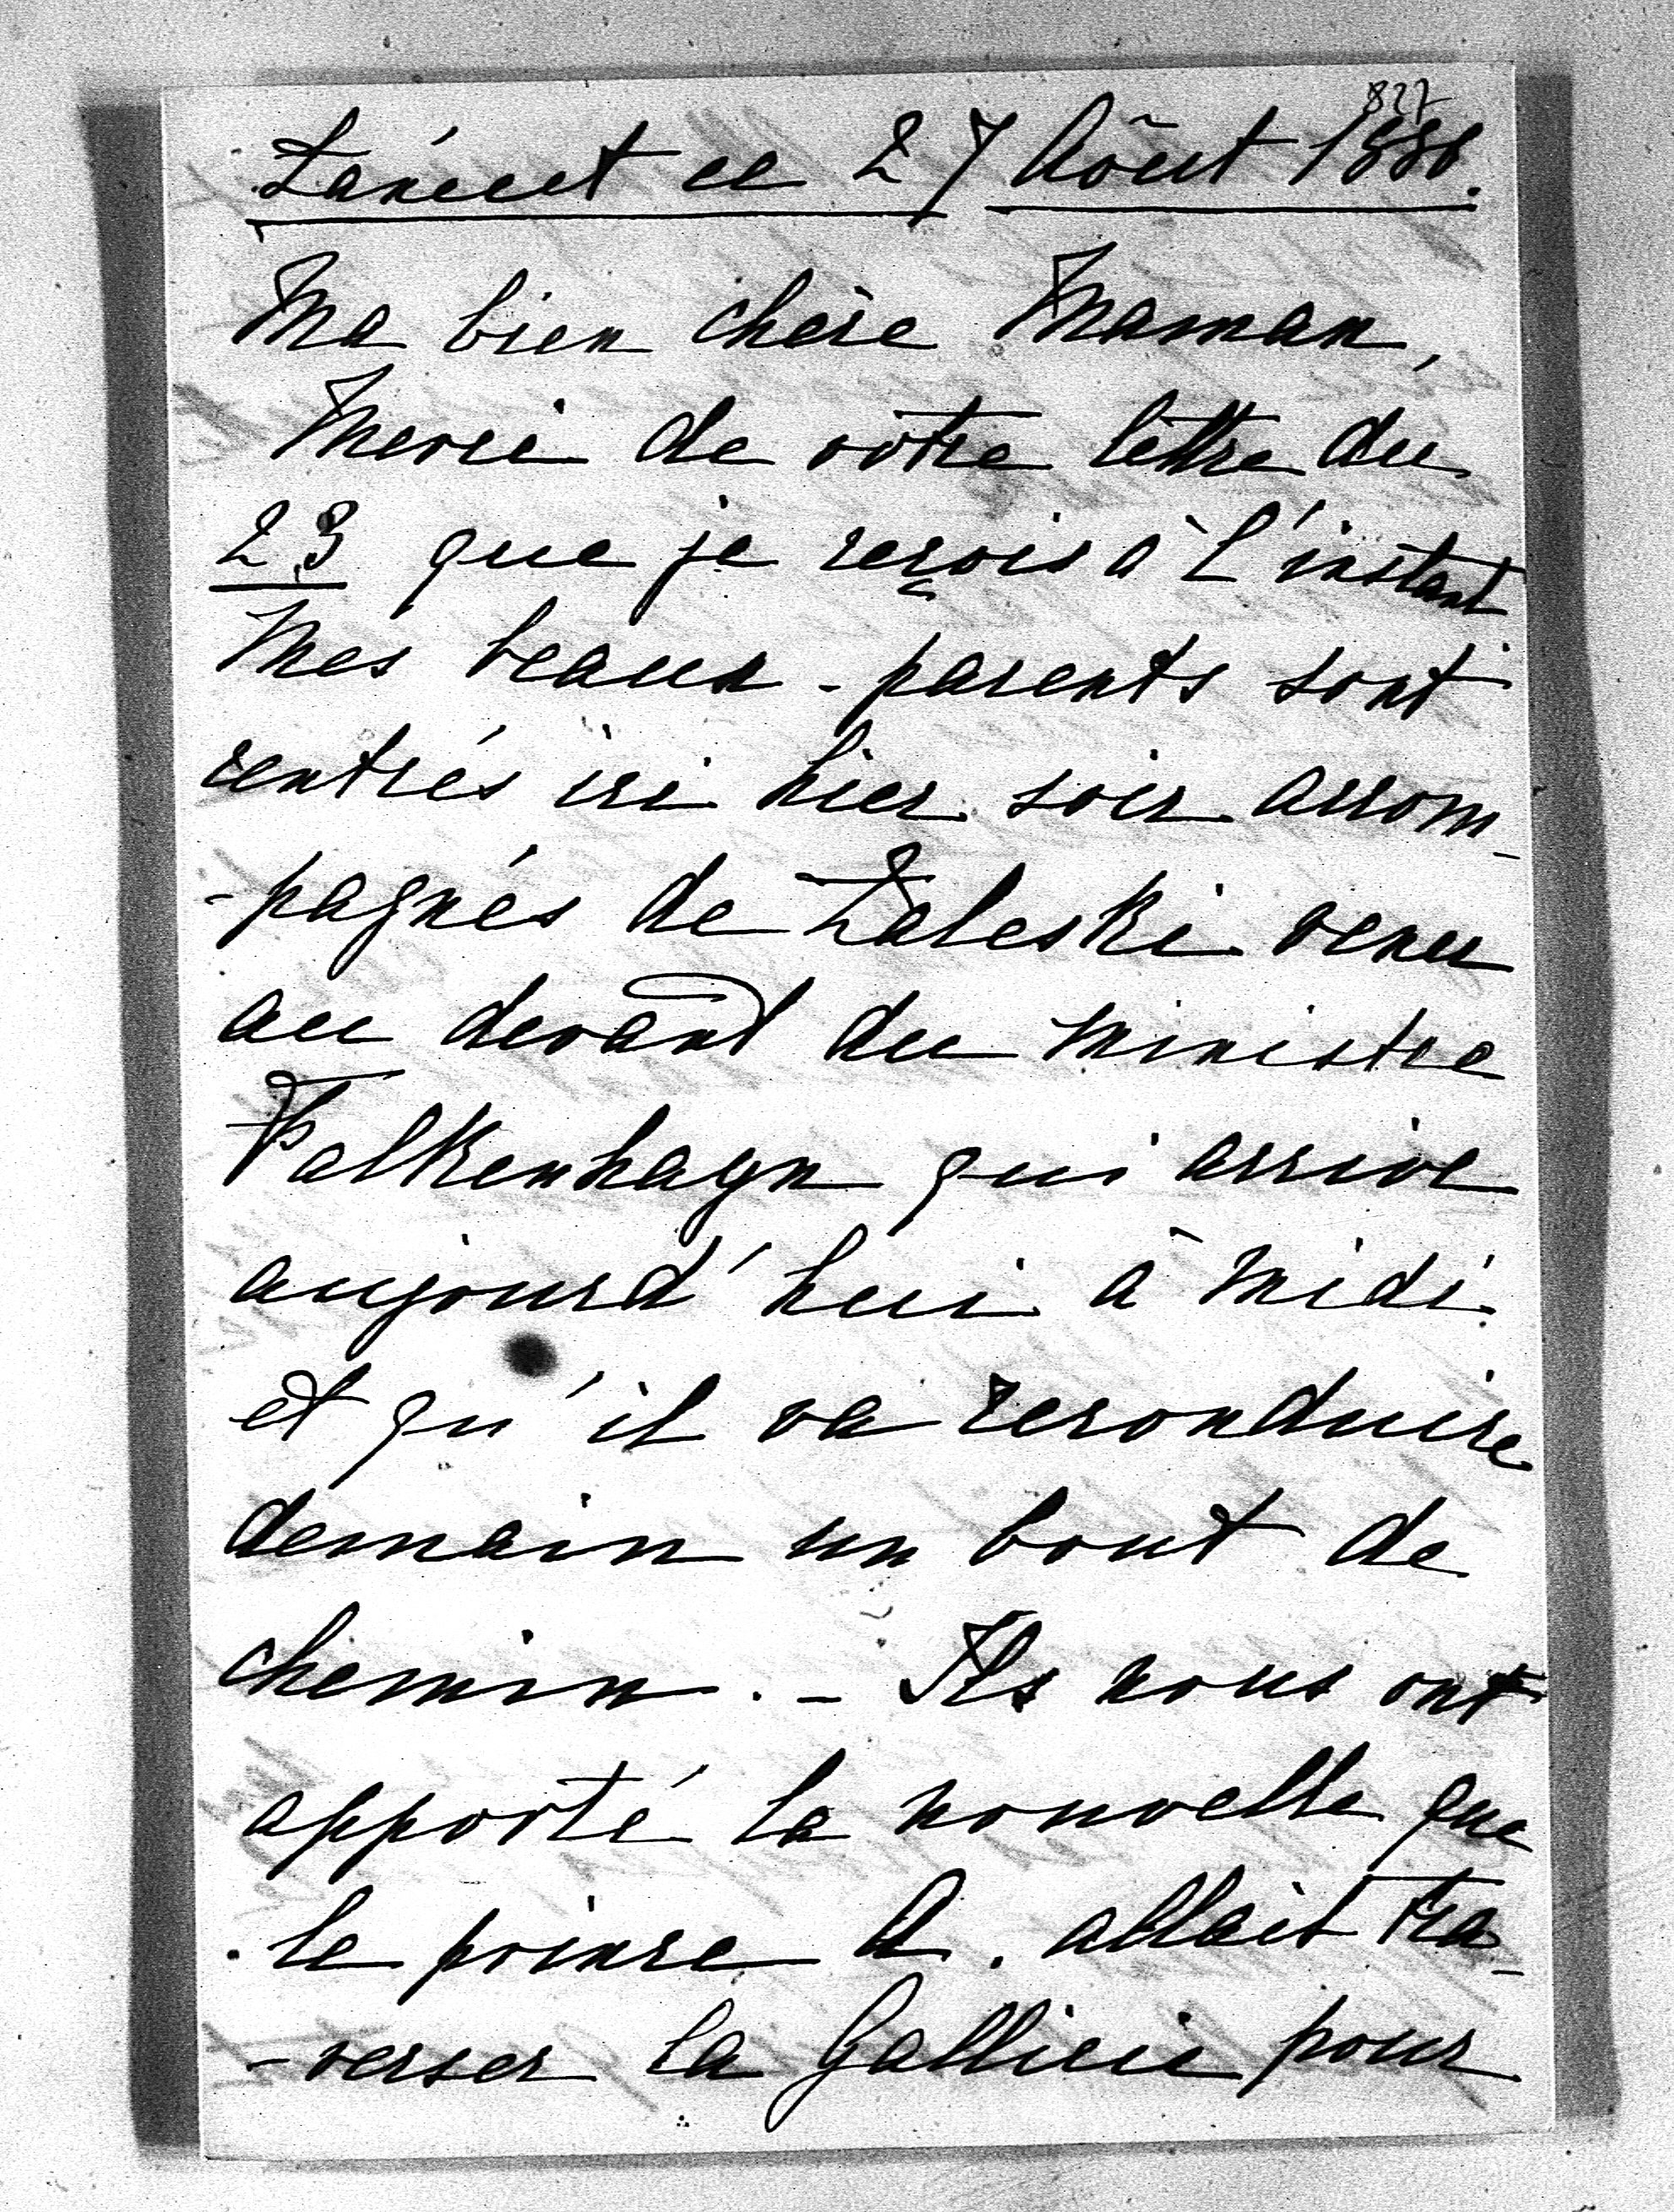 827
Lańcut ce 27 Août 1886.
Ma bien chère Maman,
Merci de vôtre lettre du
23 que je reçois à l'instant
Mes beaux-parents sont
rentrés ici hier soir accom-
-pagnés de Zaleski venu
au devant du ministre
Falkenhayn qui arrive
aujourd'hui à midi
et qu'il va reconduire
demain un bout de
chemin. - Ils nous ont
apporté la nouvelle que
le prince A. allait tra-
-verser la Gallicie pour